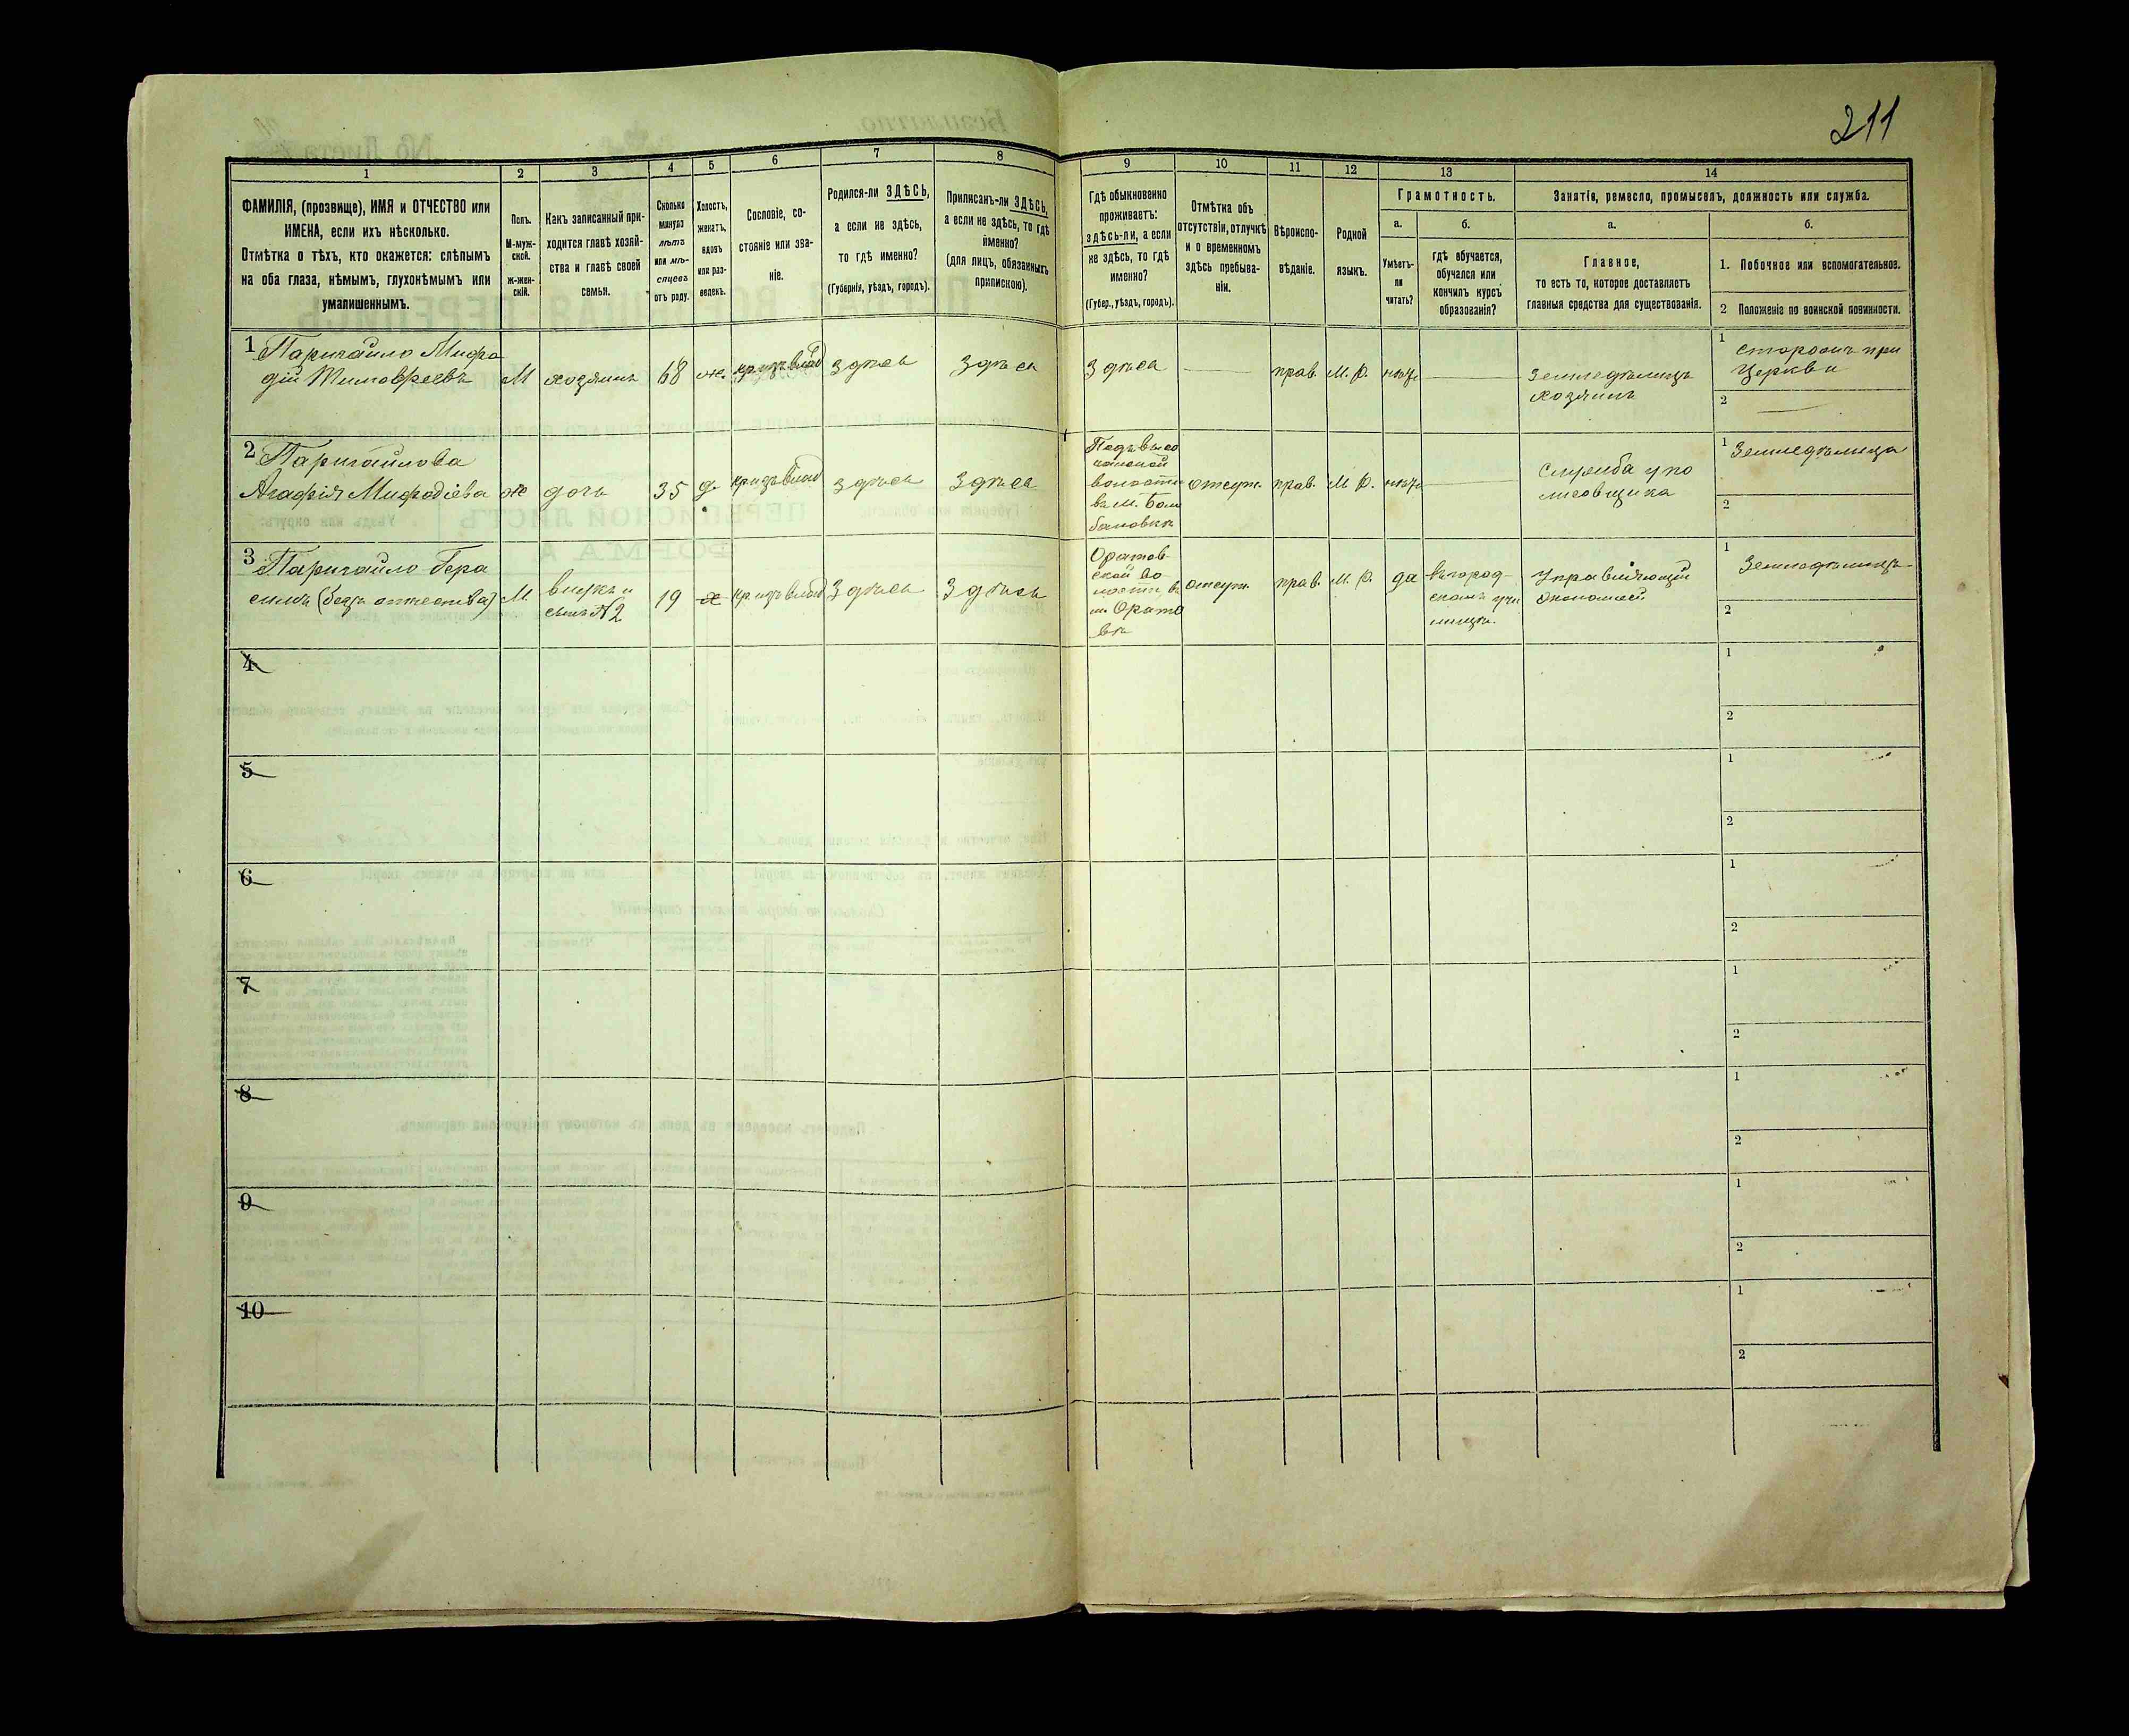 211
1
2
3
4
5
6
7
8
9
10
11
12
13
14
ФАМИЛІЯ, (прозвище), ИМЯ и ОТЧЕСТВО или
ИМЕНА, если ихъ нѣсколько.
Отмѣтка о тѣхъ, кто окажется: слѣпымъ
на оба глаза, нѣмымъ, глухонѣмымъ или
умалишеннымъ.
Полъ.
М-муж-
ской.
Ж-жен-
скій.
Какъ записанный при-
ходится главѣ хозяй-
ства и главѣ своей
семьи.
Сколько
минуло
лѣтъ
или мѣ-
сяцевъ
отъ роду.
Холостъ,
женатъ,
вдовъ
или раз-
веденъ.
Сословіе, со-
стояніе или зва-
ніе.
Родился-ли ЗДѢСЬ,
а если не здѣсь,
то гдѣ именно?
(Губернія, уѣздъ, городъ).
Приписанъ-ли ЗДѢСЬ,
а если не здѣсь, то гдѣ
именно?
(для лицъ, обязанныхъ
припискою).
Гдѣ обыкновенно
проживаетъ:
здѣсь-ли, а если
не здѣсь, то гдѣ
именно?
(Губер., уѣздъ, городъ).
Отмѣтка объ
отсутствіи, отлучкѣ
и о временномъ
здѣсь пребыва-
ніи.
Вѣроиспо-
вѣданіе.
Родной
языкъ.
Грамотность.
а.
Умѣетъ-
ли
читать?
б.
гдѣ обучается,
обучался или
кончилъ курсъ
образованія?
Занятія, ремесло, промыселъ, должность или служба.
а.
Главное,
то есть то, которое доставляетъ
главныя средства для существованія.
б.
1. Побочное или вспомогательное.
2 Положеніе по воинской повинности.
1 Паригайло Мифо
дій Тимофеевъ
М
хозяинъ
68
здѣсь
здѣсь
здѣсь
прав.
М. Р.
нѣтъ
Земледѣлецъ
хозяинъ
1
сторожъ при
Церкви
2
2 Паригайлова
Агафія Мифодіева
ж
дочь
35
д.
здѣсь
здѣсь
волости
отсут.
прав.
М. Р.
нѣтъ
Служба у по
1
Земледѣлица
2
3 Паригайло Гера
симъ (безъ отчества)
М.
внукъ и
сынъ №2
19
х
здѣсь
здѣсь
Оратов-
ской во-
лости въ
м. Орато
вѣ
отсут.
прав.
М. Р.
да
въ город-
скомъ учи
лищѣ.
Управляющій
Экономіей
1
Земледѣлецъ
2
4
1
2
5
1
2
6
1
2
7
1
2
8
1
2
9
1
2
10
1
2